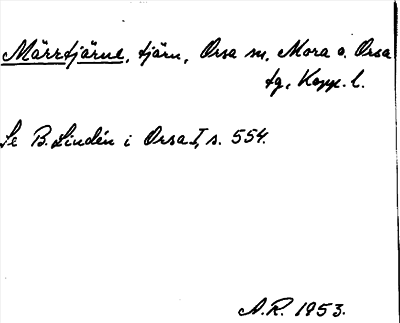 Märrtjärne, tjärn, Orsa sn, Mora o. Orsa
tg, Kopp. l.
Se B. Lindén i Orsa I, s. 554.
A.R. 1953.